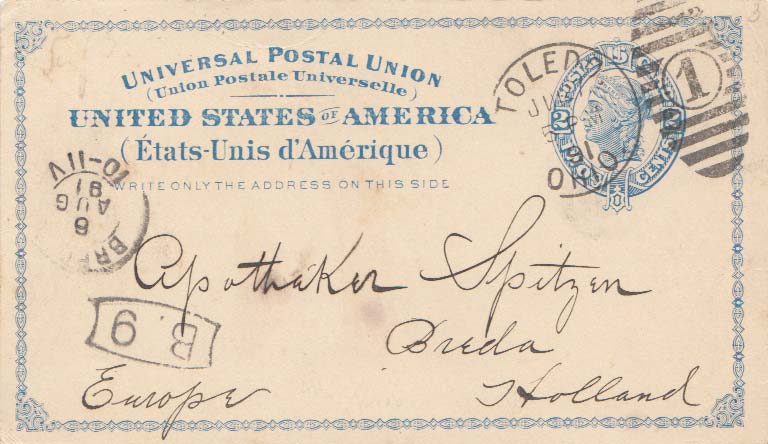 UNIVERSAL POSTAL UNION
(Union Postale Universelle)
UNITED STATES OF AMERICA
(États-Unis d'Amérique)
WRITE ONLY THE ADDRESS ON THIS SIDE
TOLEDO
OHIO
1
U.S. POSTAL CARD
2 CENTS 2
10-11V
91
AUG
6
BRE
B. 9
Apotheker Spitzen
Breda
Europe Holland